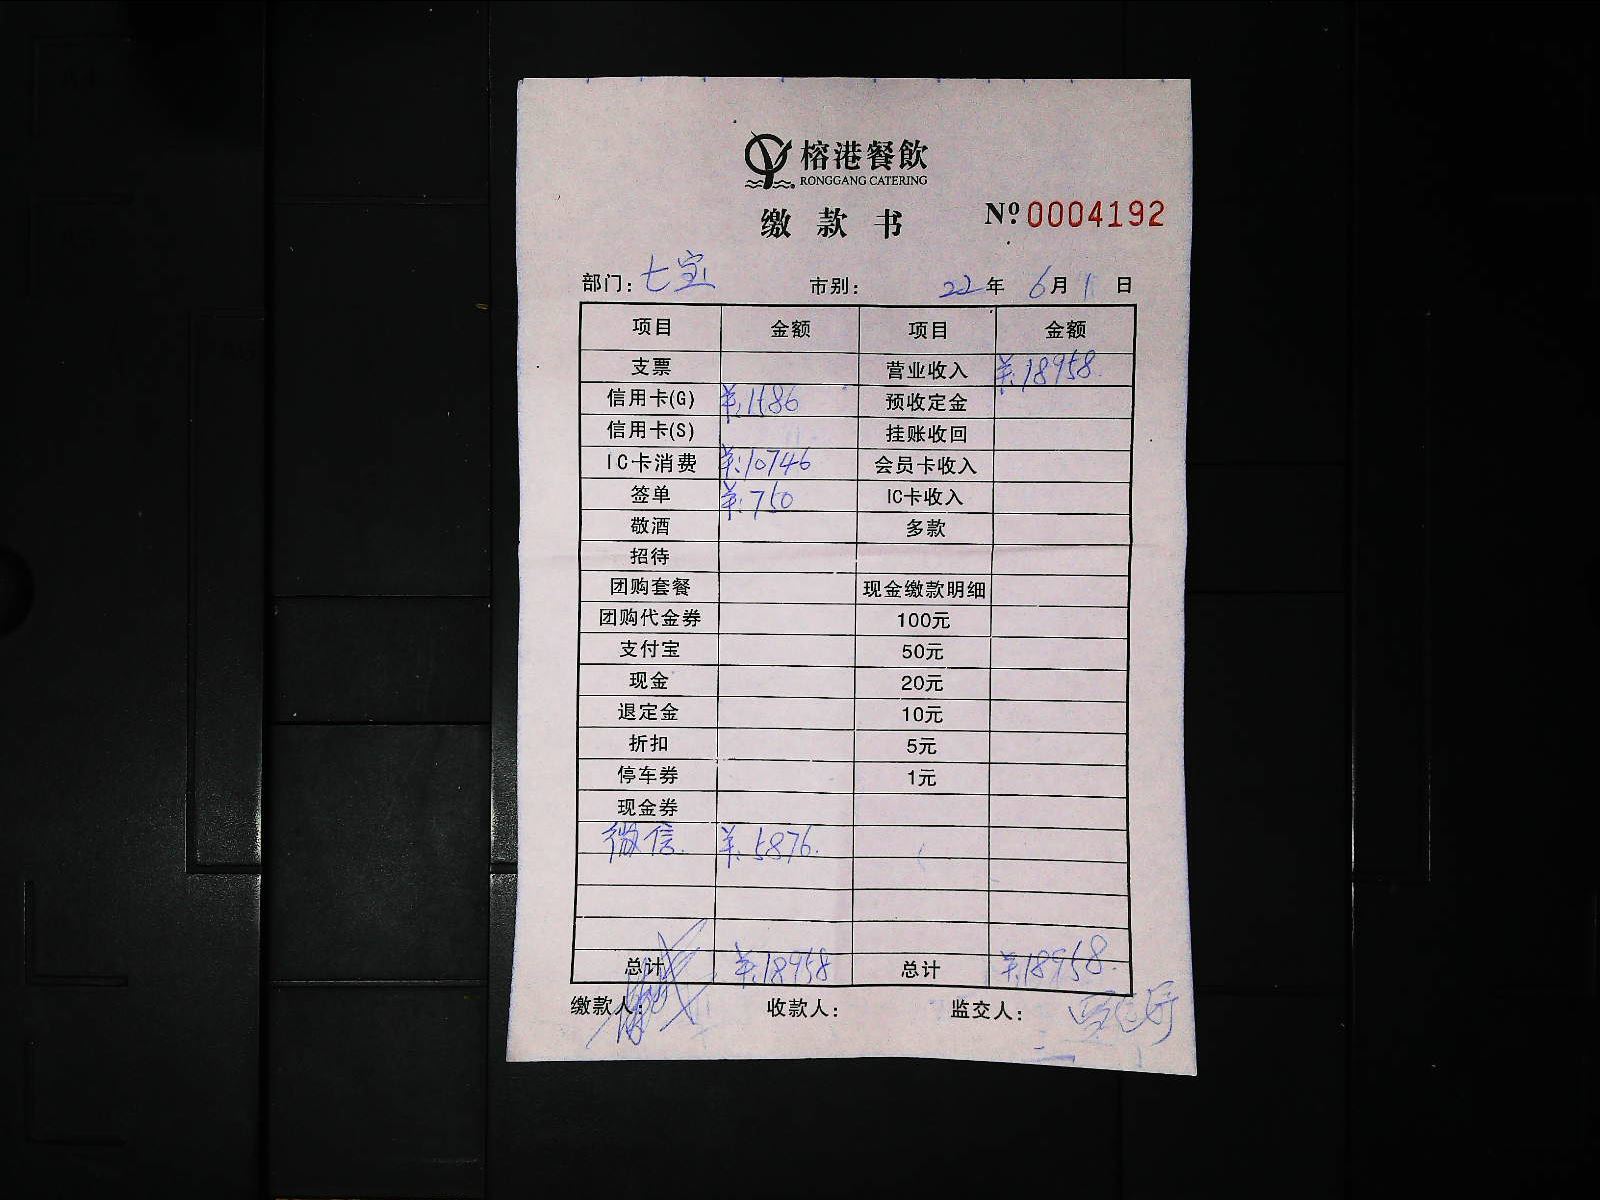 榕港餐飲
RONGGANG CATERING
缴款书 Nº 0004192
部门: 七宝 市别: 22年 6月 1日
项目 金额 项目 金额
支票 营业收入 ¥:18958.
信用卡(G) ¥:1586 预收定金
信用卡(S) 挂账收回
IC卡消费 ¥:10746 会员卡收入
签单 ¥:750 IC卡收入
敬酒 多款
招待
团购套餐 现金缴款明细
团购代金券 100元
支付宝 50元
现金 20元
退定金 10元
折扣 5元
停车券 1元
现金券
微信. ¥:5876.
总计 ¥:18958 总计 ¥:18958.
缴款人: 收款人: 监交人: